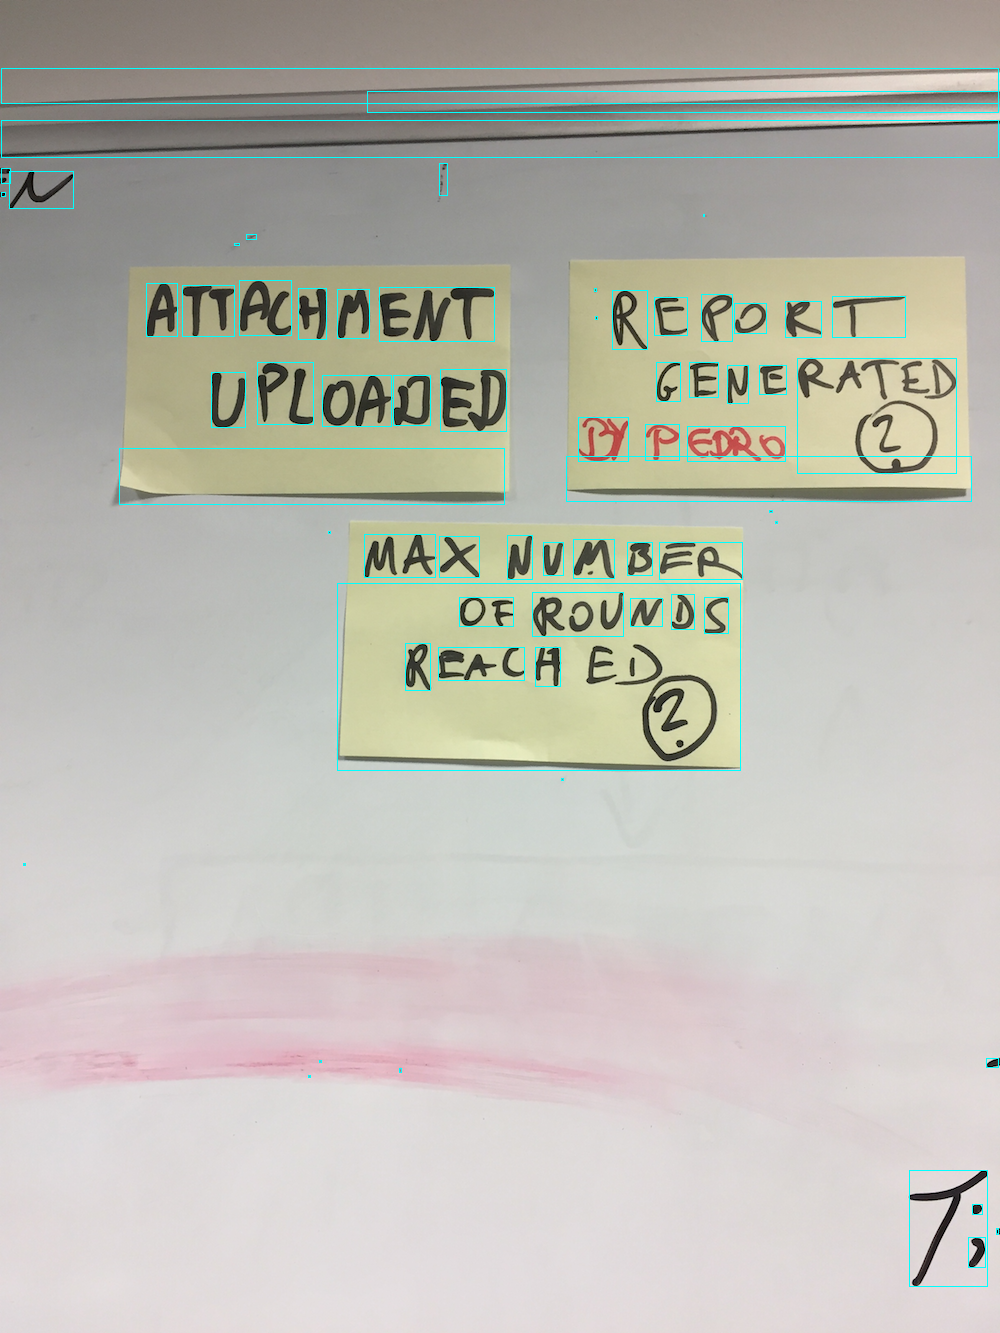 ATTACHMENT
UPLOADED
REPORT
GENERATED
BY PEDRO
?
MAX NUMBER
OF ROUNDS
REACHED
?